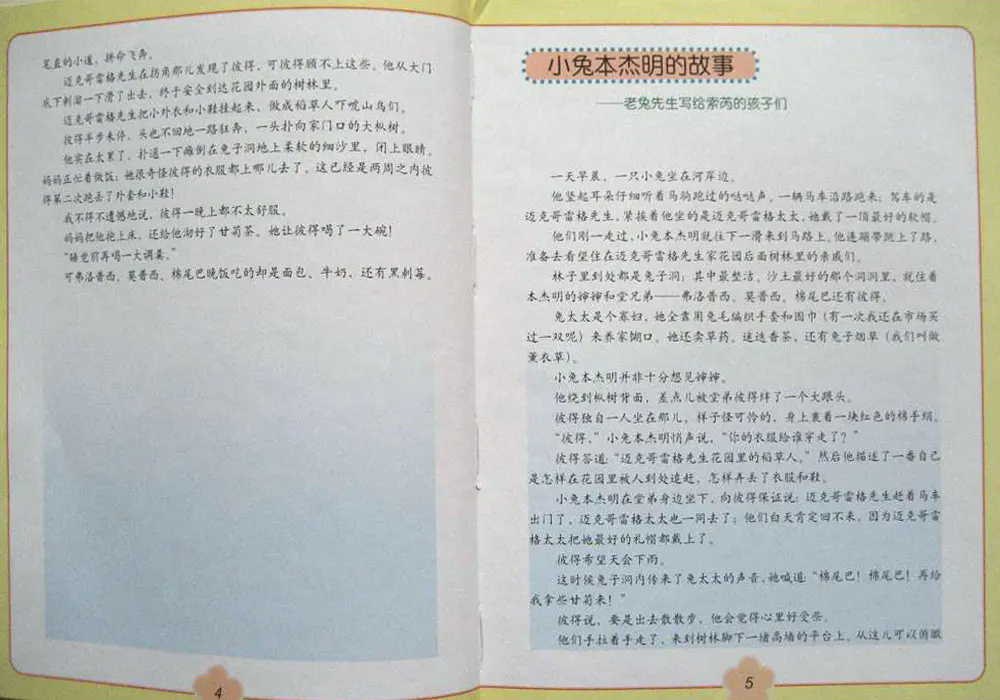 笔直的小道，拼命飞奔。
迈克哥雷格先生在拐角那儿发现了彼得，可彼得顾不上这些。他从大门
底下刺溜一下滑了出去，终于安全到达花园外面的树林里。
迈克哥雷格先生把小外衣和小鞋挂起来，做成稻草人下唬山鸟们。
彼得半步未停、头也不回地一路狂奔，一头扑向家门口的大枞树。
他实在太累了，扑通一下瘫倒在兔子洞地上柔软的细沙里，闭上眼睛。
妈妈正忙着做饭；她很奇怪彼得的衣服都上哪儿去了。这已经是两周之内彼
得第二次跑丢了外套和小鞋！
我不得不遗憾地说，彼得一晚上都不太舒服。
妈妈把他抱上床，还给他沏好了甘菊茶。她让彼得喝了一大碗！
“睡觉前再喝一大调羹。”
可弗洛普西、莫普西、棉尾巴晚饭吃的却是面包、牛奶，还有黑刺莓。
4
小兔本杰明的故事
——老兔先生写给索芮的孩子们
一天早晨，一只小兔坐在河岸边。
他竖起耳朵仔细听着马驹跑过的哒哒声。一辆马车沿路跑来；驾车的是
迈克哥雷格先生，紧挨着他坐的是迈克哥雷格太太，她戴了一顶最好的软帽。
他们刚一走过，小兔本杰明就往下一滑来到马路上，他连蹦带跳上了路，
准备去看望住在迈克哥雷格先生家花园后面树林里的亲戚们。
林子里到处都是兔子洞；其中最整洁、沙土最好的那个洞洞里，就住着
本杰明的婶婶和堂兄弟——弗洛普西、莫普西、棉尾巴还有彼得。
兔太太是个寡妇，她全靠用兔毛编织手套和围巾（有一次我还在市场买
过一双呢）来养家糊口。她还卖草药、迷迭香茶，还有兔子烟草（我们叫做
薰衣草）。
小兔本杰明并非十分想见婶婶。
他绕到枞树背面，差点儿被堂弟彼得绊了一个大跟头。
彼得独自一人坐在那儿，样子怪可怜的，身上裹着一块红色的棉手绢。
“彼得，”小兔本杰明悄声说，“你的衣服给谁穿走了？”
彼得答道：“迈克哥雷格先生花园里的稻草人。”然后他描述了一番自己
是怎样在花园里被人到处追赶，怎样弄丢了衣服和鞋。
小兔本杰明在堂弟身边坐下，向彼得保证说：迈克哥雷格先生赶着马车
出门了，迈克哥雷格太太也一同去了；他们白天肯定回不来，因为迈克哥雷
格太太把她最好的礼帽都戴上了。
彼得希望天会下雨。
这时候兔子洞内传来了兔太太的声音，她喊道：“棉尾巴！棉尾巴！再给
我拿些甘菊来！”
彼得说，要是出去散散步，他会觉得心里好受些。
他们手拉着手走了，来到树林脚下一堵高墙的平台上。从这儿可以俯瞰
5